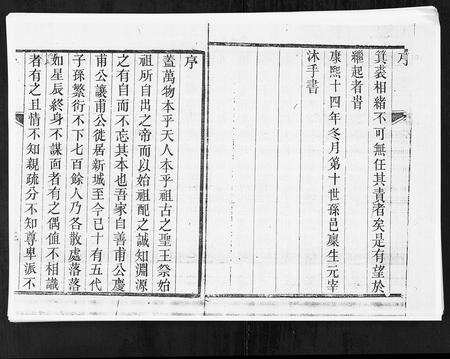 序
箕裘相緒不可無任其責者矣是有望於
繼起者旹
康熙十四年冬月第十世孫邑廩生元宰
沐手書
序
蓋萬物本乎天人本乎祖古之聖王祭始
祖所自出之帝而以始祖配之誠知淵源
之有自而不忘其本也吾家自善甫公慶
甫公讓甫公徙居新城至今已十有五代
子孫繁衍不下七百餘人乃各散處落落
如星辰終身不謀面者有之偶值不相識
者有之且情不知親疏分不知尊卑派不